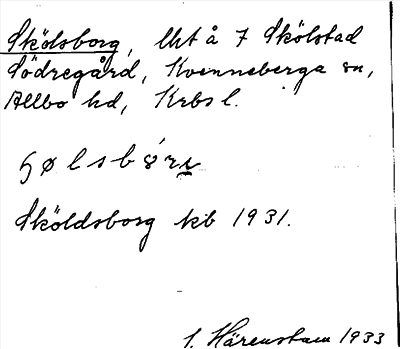 Skölsborg, lht å 7 Skölstad
Södregård, Kvenneberga sn,
Allbo hd, Krbs l.
Sköldsborg kb 1931.
S. Härenstam 1933